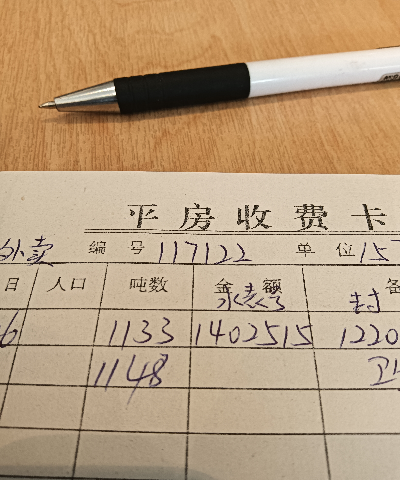 平房收费卡
外卖 编号 117122 单位 157
日 人口 吨数 金额 备
水表号 封
6 1133 1402515 1220
1148